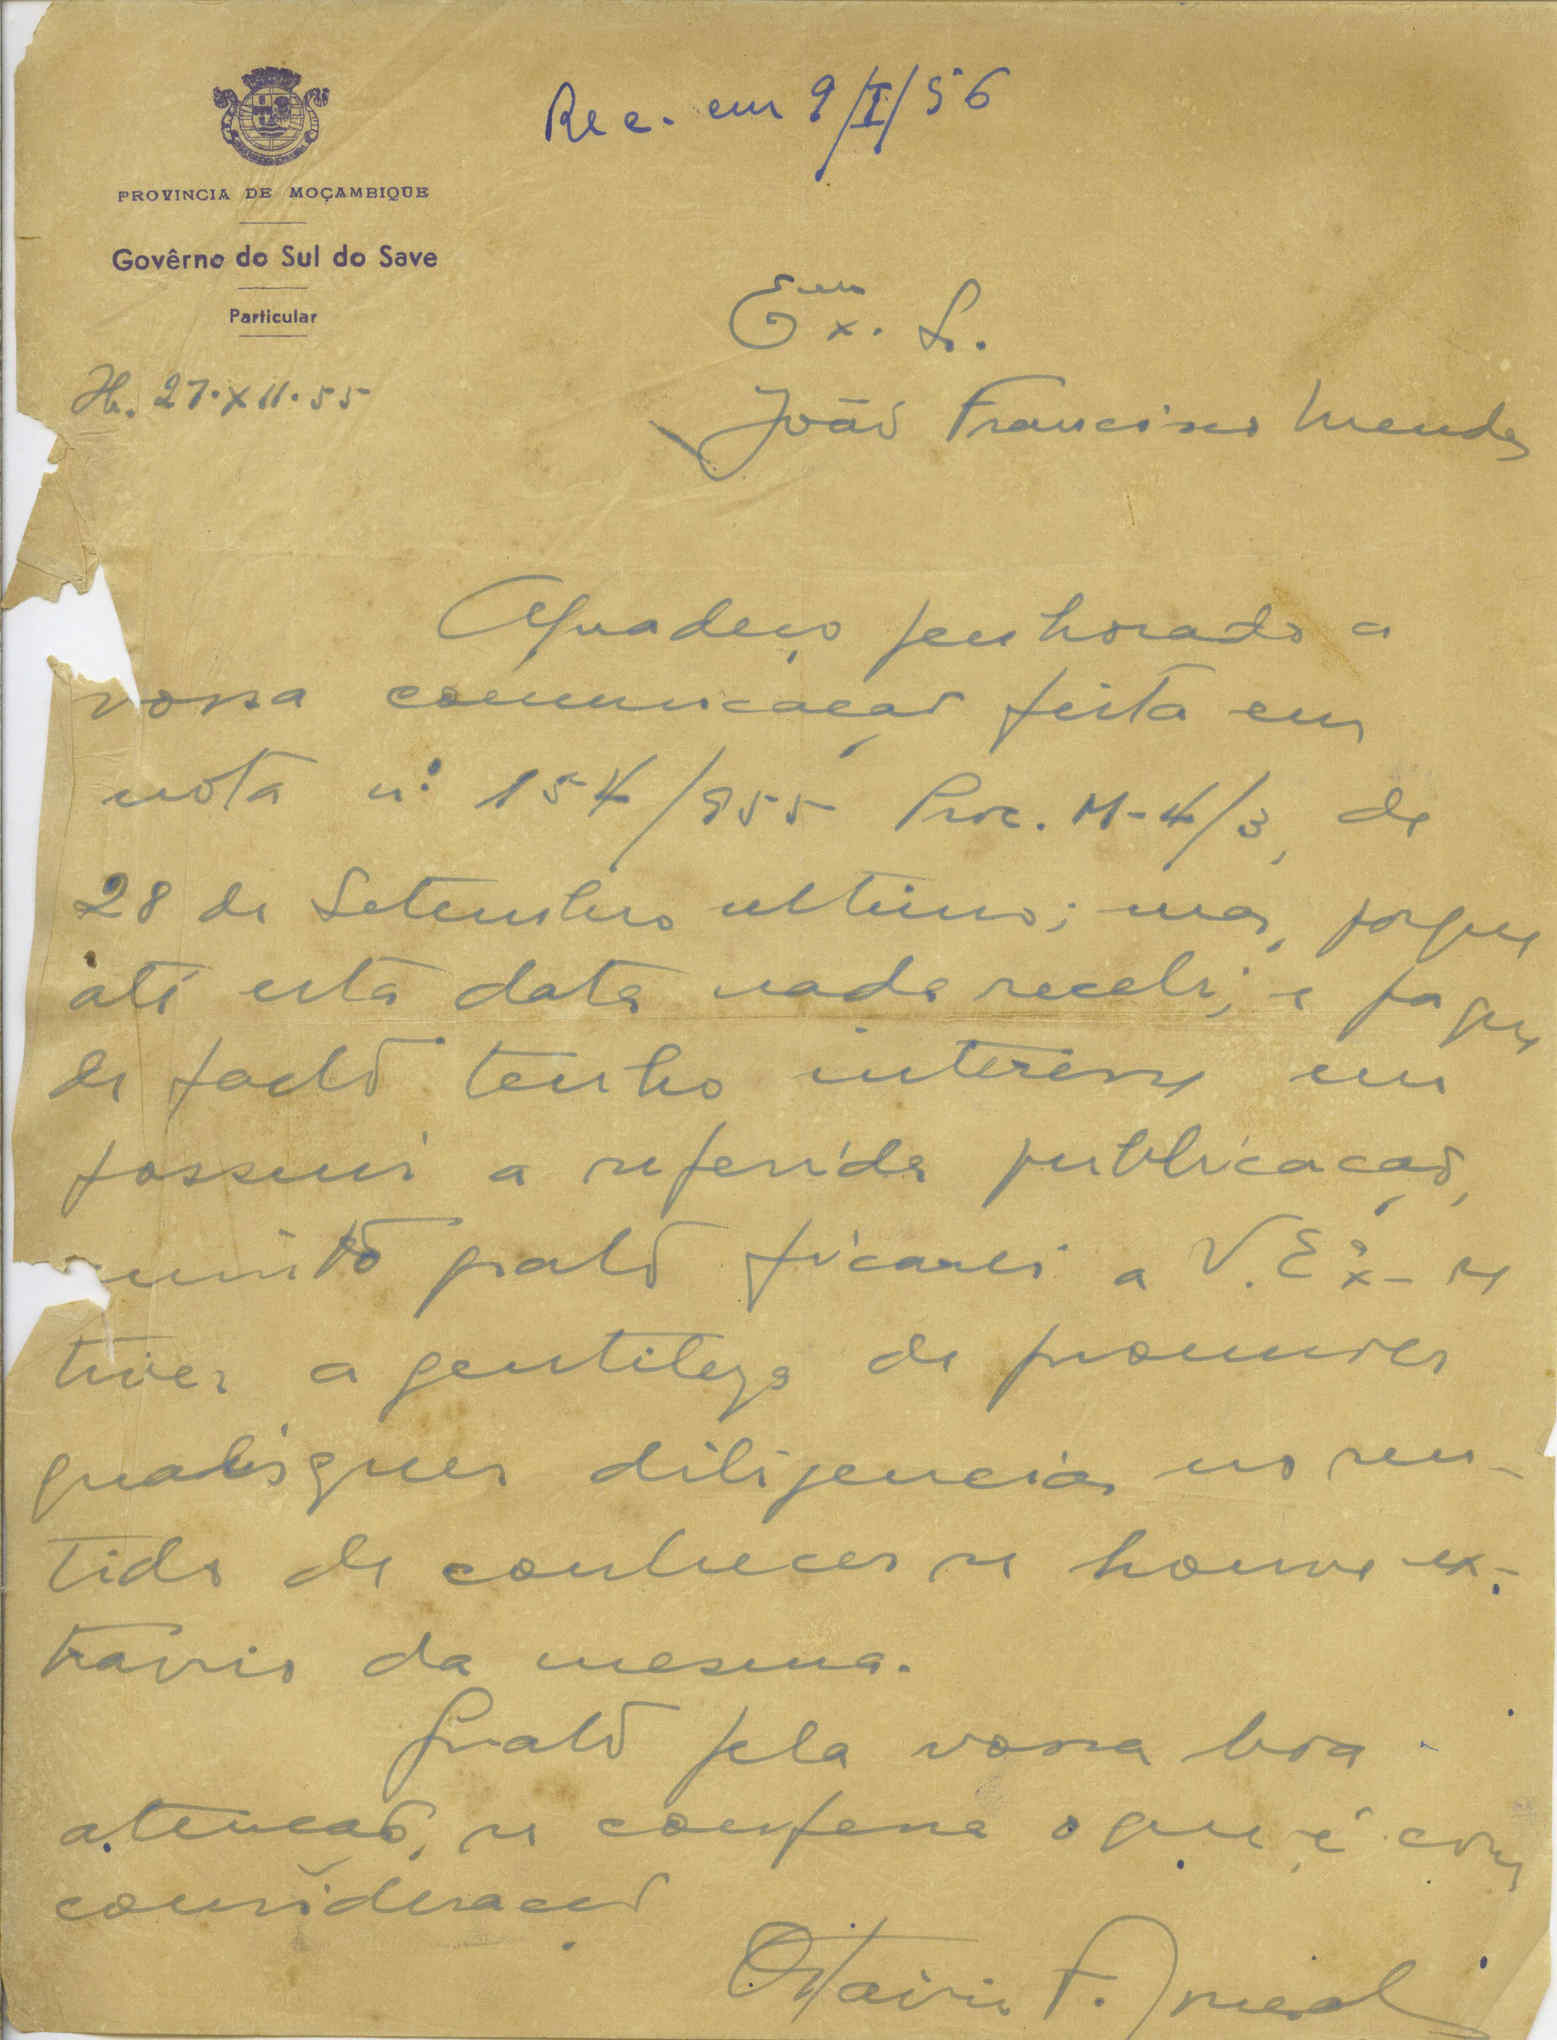 Rec. em 9/I/56
PROVINCIA DE MOÇAMBIQUE
Govêrno do Sul do Save
Particular
27.XII.55
Exmo. Sr.
João Francisco Mendes
Agradeço penhorado a
vossa comunicação feita em
nota nº 154/955 Proc. M-4/3, de
28 de Setembro ultimo; mas, porque
até esta data nada recebi, e porque
de facto tenho interesse em
possuir a referida publicação,
muito grato ficarei a V. Exª se
tiver a gentileza de promover
quaisquer diligencias no sen-
tido de conhecer se houve ex-
travio da mesma.
Grato pela vossa boa
atenção, se confessa o que é com
consideração
Octavio F.